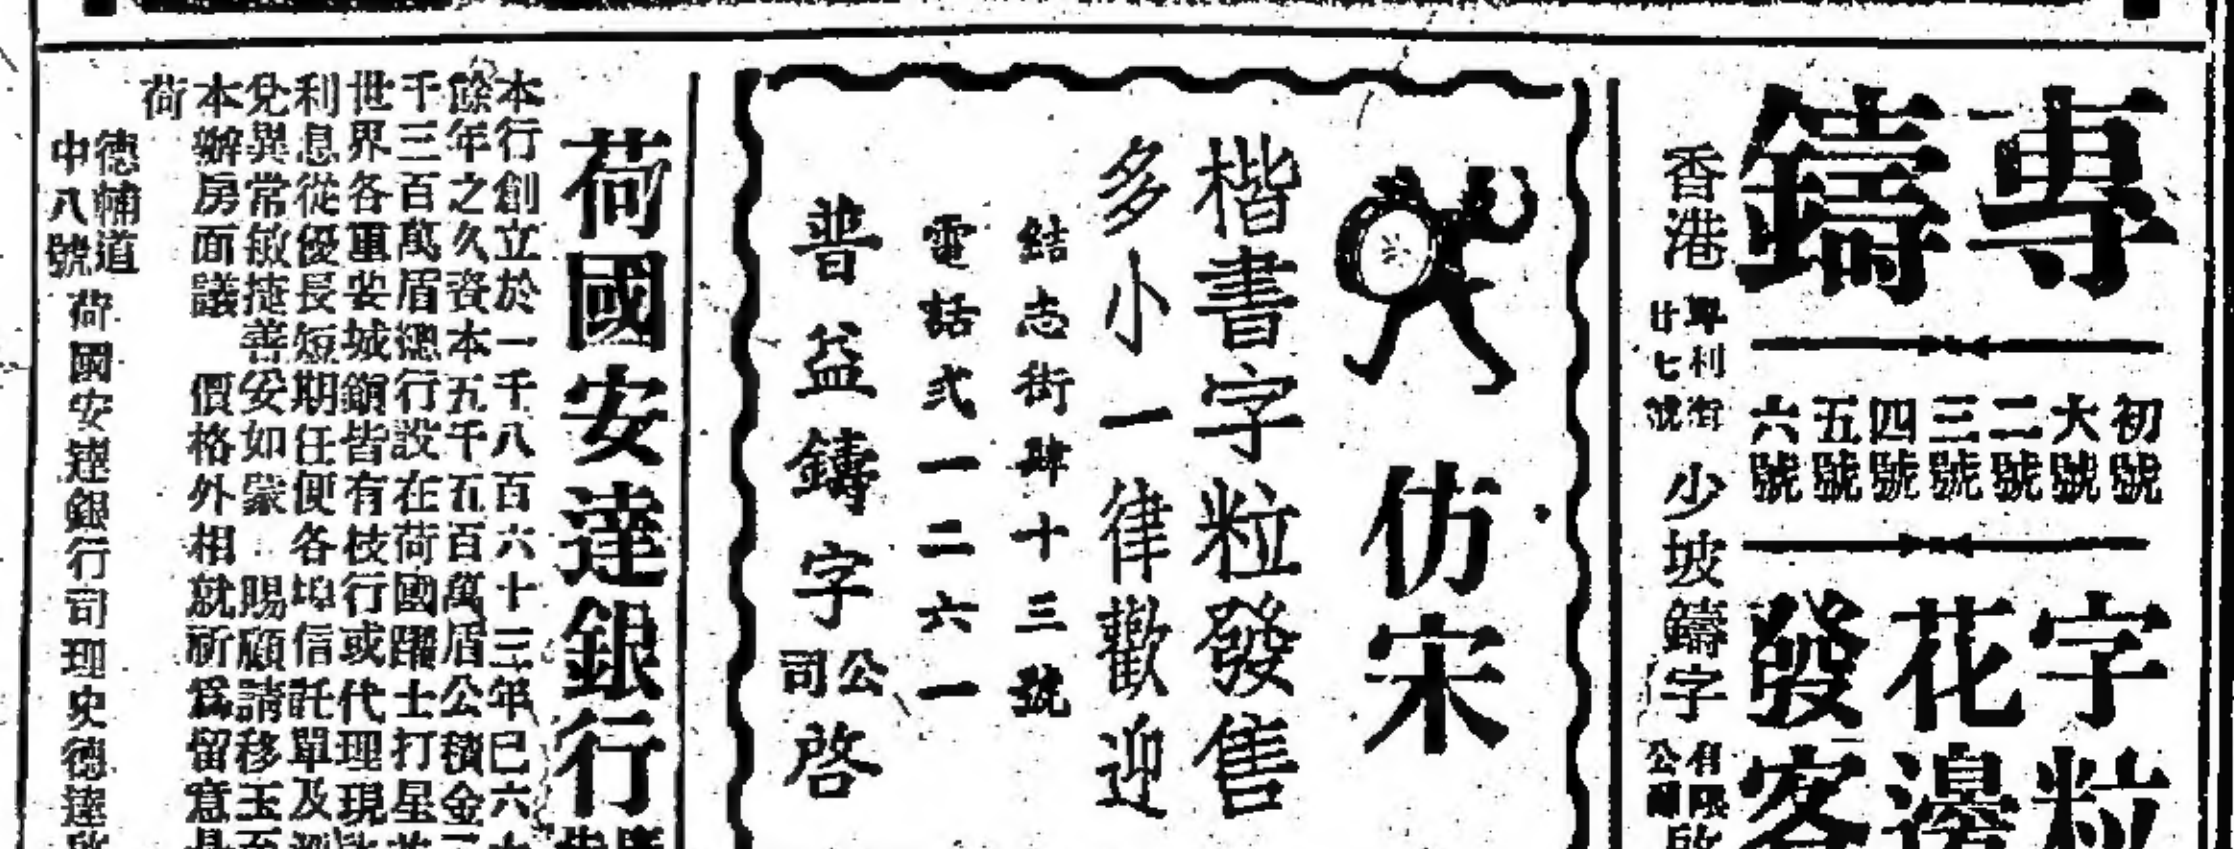 專鑄
初號
大號
二號
三號
四號
五號
六號
字粒
花邊
發客
香港
卑利街
廿七號
少坡鑄字
有限
公司
啟
仿宋
楷書字粒發售
多小一律歡迎
結志街肆十三號
電話弍一二六一
普益鑄字公司啓
荷國安達銀行
本行創立於一千八百六十三年已六
餘年之久資本五千五百萬盾公積金
千三百萬盾總行設在荷國躍士打星
世界各重要城鎮皆有枝行或代理現
利息從優長短期任便各埠信託單及
兌異常敏捷善妥如蒙 賜顧請移玉至
本辦房面議 價格外相就祈為留意是
荷
德輔道
中八號
荷國安達銀行司理史德達啟